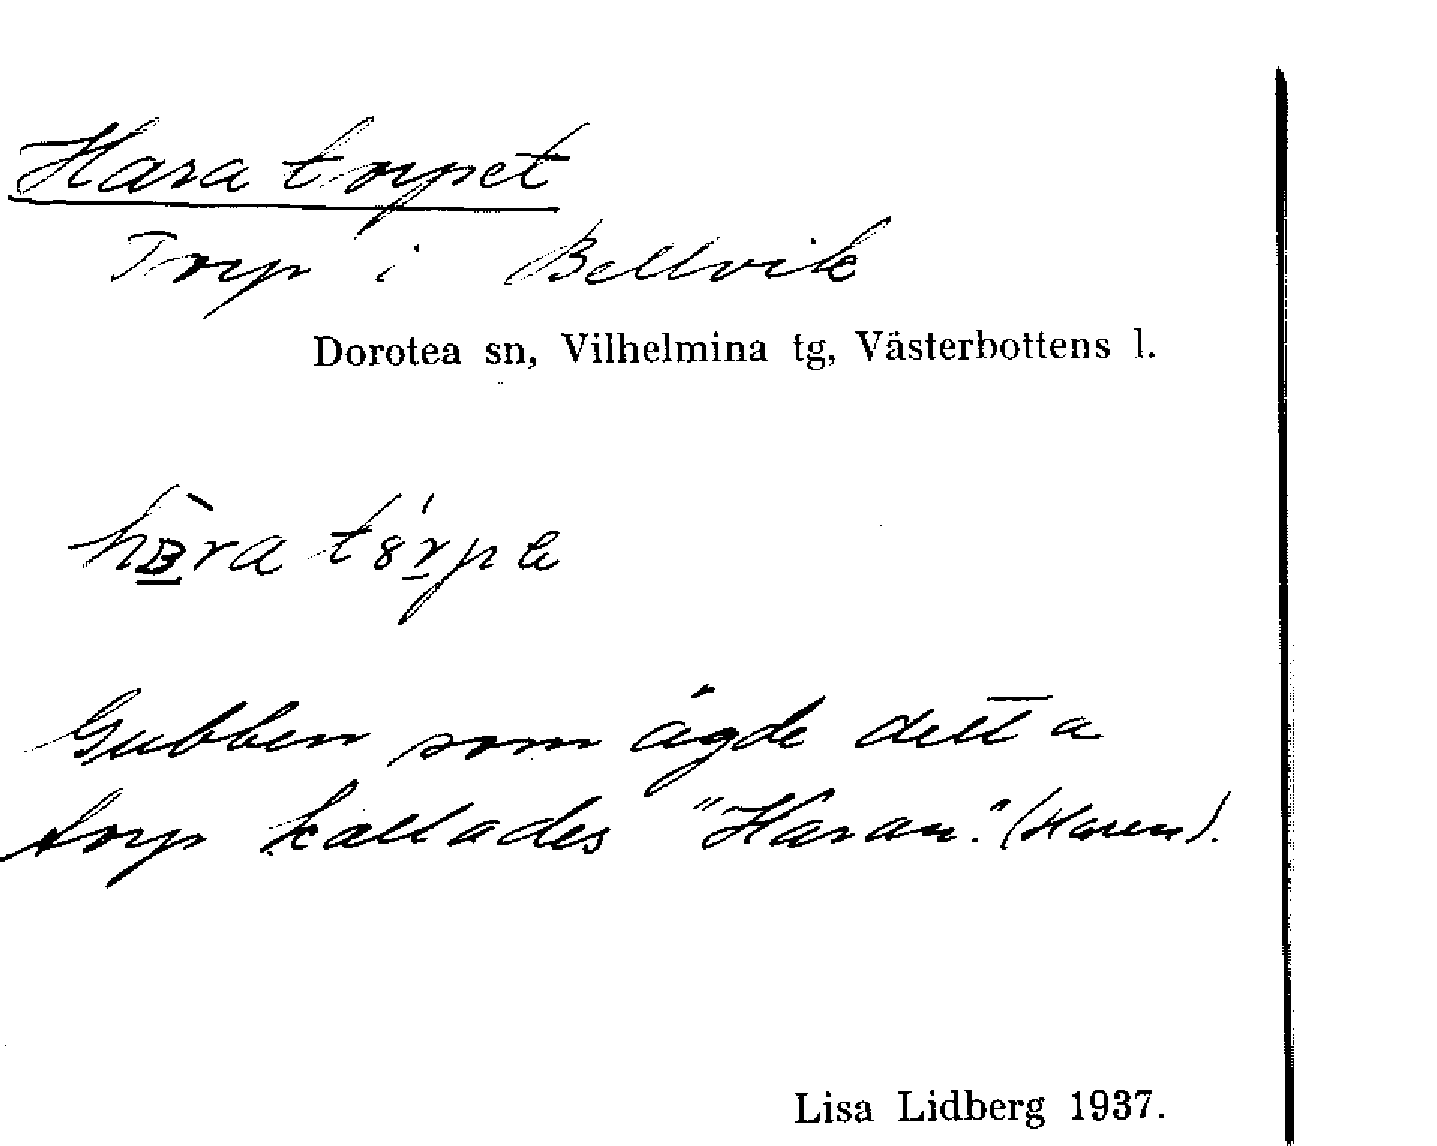 Haratorpet
Torp i Bellvik
Dorotea sn, Vilhelmina tg, Västerbottens l.
Gubben som ägde detta
torp kallades "Haran." (Haren).
Lisa Lidberg 1937.